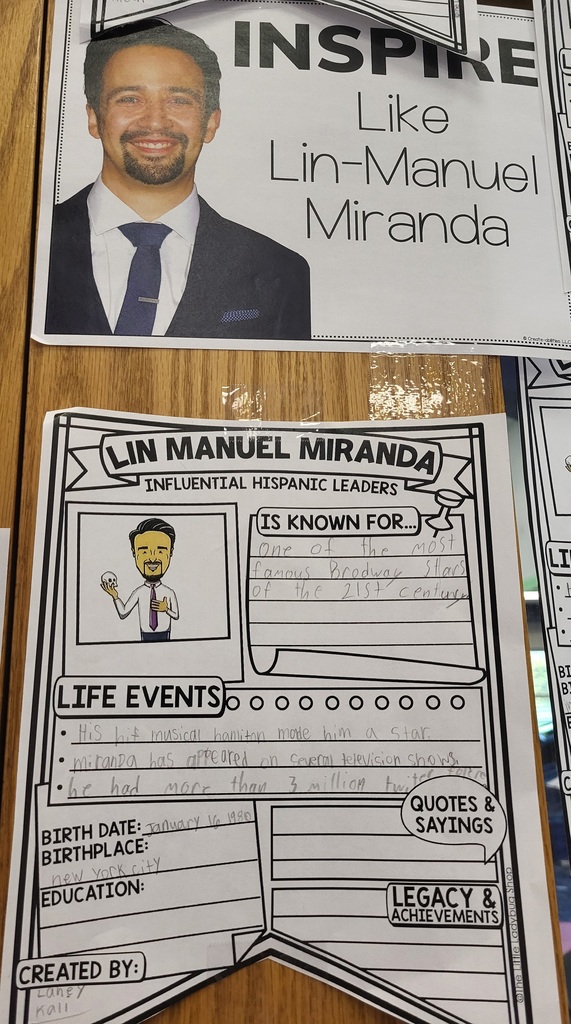 INSPIRE
Like
Lin-Manuel
Miranda
LIN MANUEL MIRANDA
INFLUENTIAL HISPANIC LEADERS
IS KNOWN FOR...
one of the most
famous Brodway stars
of the 21st century
LIFE EVENTS
• His hit musical hamilton made him a star.
• miranda has appeared on several television shows.
• he had more than 3 million twiter
QUOTES &
SAYINGS
BIRTH DATE: January 16 1980
BIRTHPLACE:
new york city
EDUCATION:
LEGACY &
ACHIEVEMENTS
CREATED BY:
Laney
Kali
©The Little Ladybug Shop